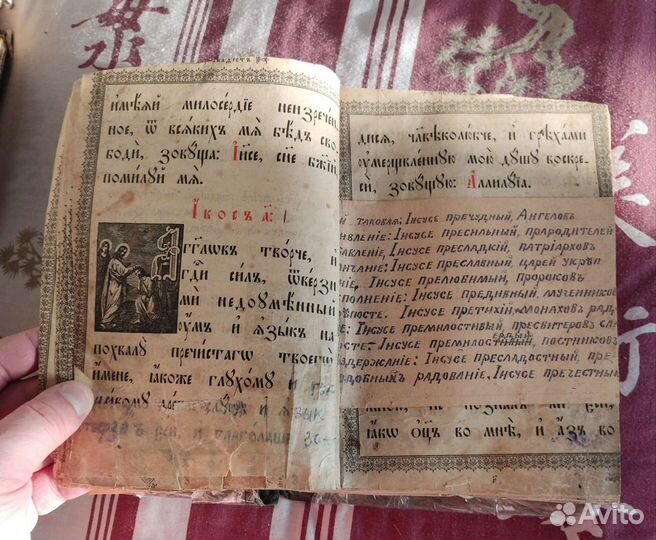 имѣяй милосердіе неизречен
ное, ѿ всѧкихъ мѧ бѣдъ сво
боди, зовꙋща: Іи҃се, сн҃е бж҃їй
помилꙋй мѧ.
Ікосъ а҃:
Аг҃гл҃ѡвъ творче, и
гд҃и силъ, ѿверзи
ми недоꙋмѣнный
ꙋмъ и ѧзыкъ на
похвалꙋ пречистагѡ твоегѡ
имене, ꙗкоже глꙋхомꙋ и
и ѧзык
дисѧ, чл҃вѣколюбче, и грѣхами
ᲂумерщвленнꙋю мою дꙋшꙋ воскре
сй, зовꙋщꙋю: Аллилꙋїа.
й таковая: Іисусе пречудный, Ангеловъ
вленіе: Іисусе пресильный, прародителей
бавленіе, Іисусе пресладкій, патріарховъ
личаніе: Іисусе преславный, царей укрѣп
ніе, Іисусе прелюбимый, пророковъ
сполненіе: Іисусе предивный, мучениковъ
рѣпосте. Іисусе претихій, монаховъ рад
сте: Іисусе премилостивый, пресвитеровъ сла
сте: Іисусе премилосердый, постниковъ
здержаніе: Іисусе пресладостный, пре
добныхъ радованіе: Іисусе пречестный
ꙗкѡ ѻц҃ъ во мнѣ, и азъ во
Avito